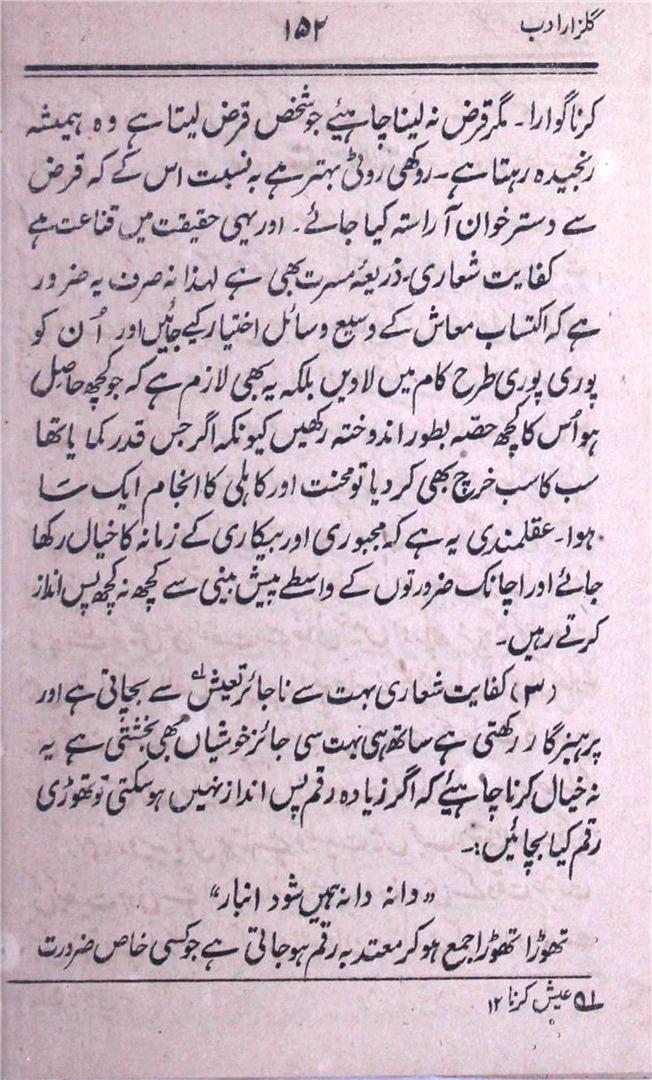 گلزار ادب
۱۵۲
کرنا گوارا۔ مگر قرض نہ لینا چاہیئے جو شخص قرض لیتا ہے وہ ہمیشہ
رنجیدہ رہتا ہے۔ روکھی روٹی بہتر ہے بہ نسبت اس کے کہ قرض
سے دسترخوان آراستہ کیا جائے۔ اور یہی حقیقت میں قناعت ہے
کفایت شعاری۔ ذریعۂ مسرت بھی ہے لہذا نہ صرف یہ ضرور
ہے کہ اکتساب معاش کے وسیع وسائل اختیار کیے جائیں اور اُن کو
پوری پوری طرح کام میں لاویں بلکہ یہ بھی لازم ہے کہ جو کچھ حاصل
ہو اُس کا کچھ حصّہ بطور اندوختہ رکھیں کیونکہ اگر جس قدر کمایا تھا
سب کا سب خرچ بھی کر دیا تو محنت اور کاہلی کا انجام ایک سا
ہوا۔ عقلمندی یہ ہے کہ مجبوری اور بیکاری کے زمانہ کا خیال رکھا
جائے اور اچانک ضرورتوں کے واسطے پیش بینی سے کچھ نہ کچھ پس انداز
کرتے رہیں۔
(۳) کفایت شعاری بہت سے ناجائز تعیش لہ سے بچاتی ہے اور
پرہیزگار رکھتی ہے ساتھ ہی بہت سی جائز خوشیاں بھی بخشتی ہے یہ
نہ خیال کرنا چاہیئے کہ اگر زیادہ رقم پس انداز نہیں ہو سکتی تو تھوڑی
رقم کیا بچائیں :۔
"دانہ دانہ ہمیں شود انبار"
تھوڑا تھوڑا جمع ہو کر معتدبہ رقم ہو جاتی ہے جو کسی خاص ضرورت
لہ عیش کرنا ۱۲